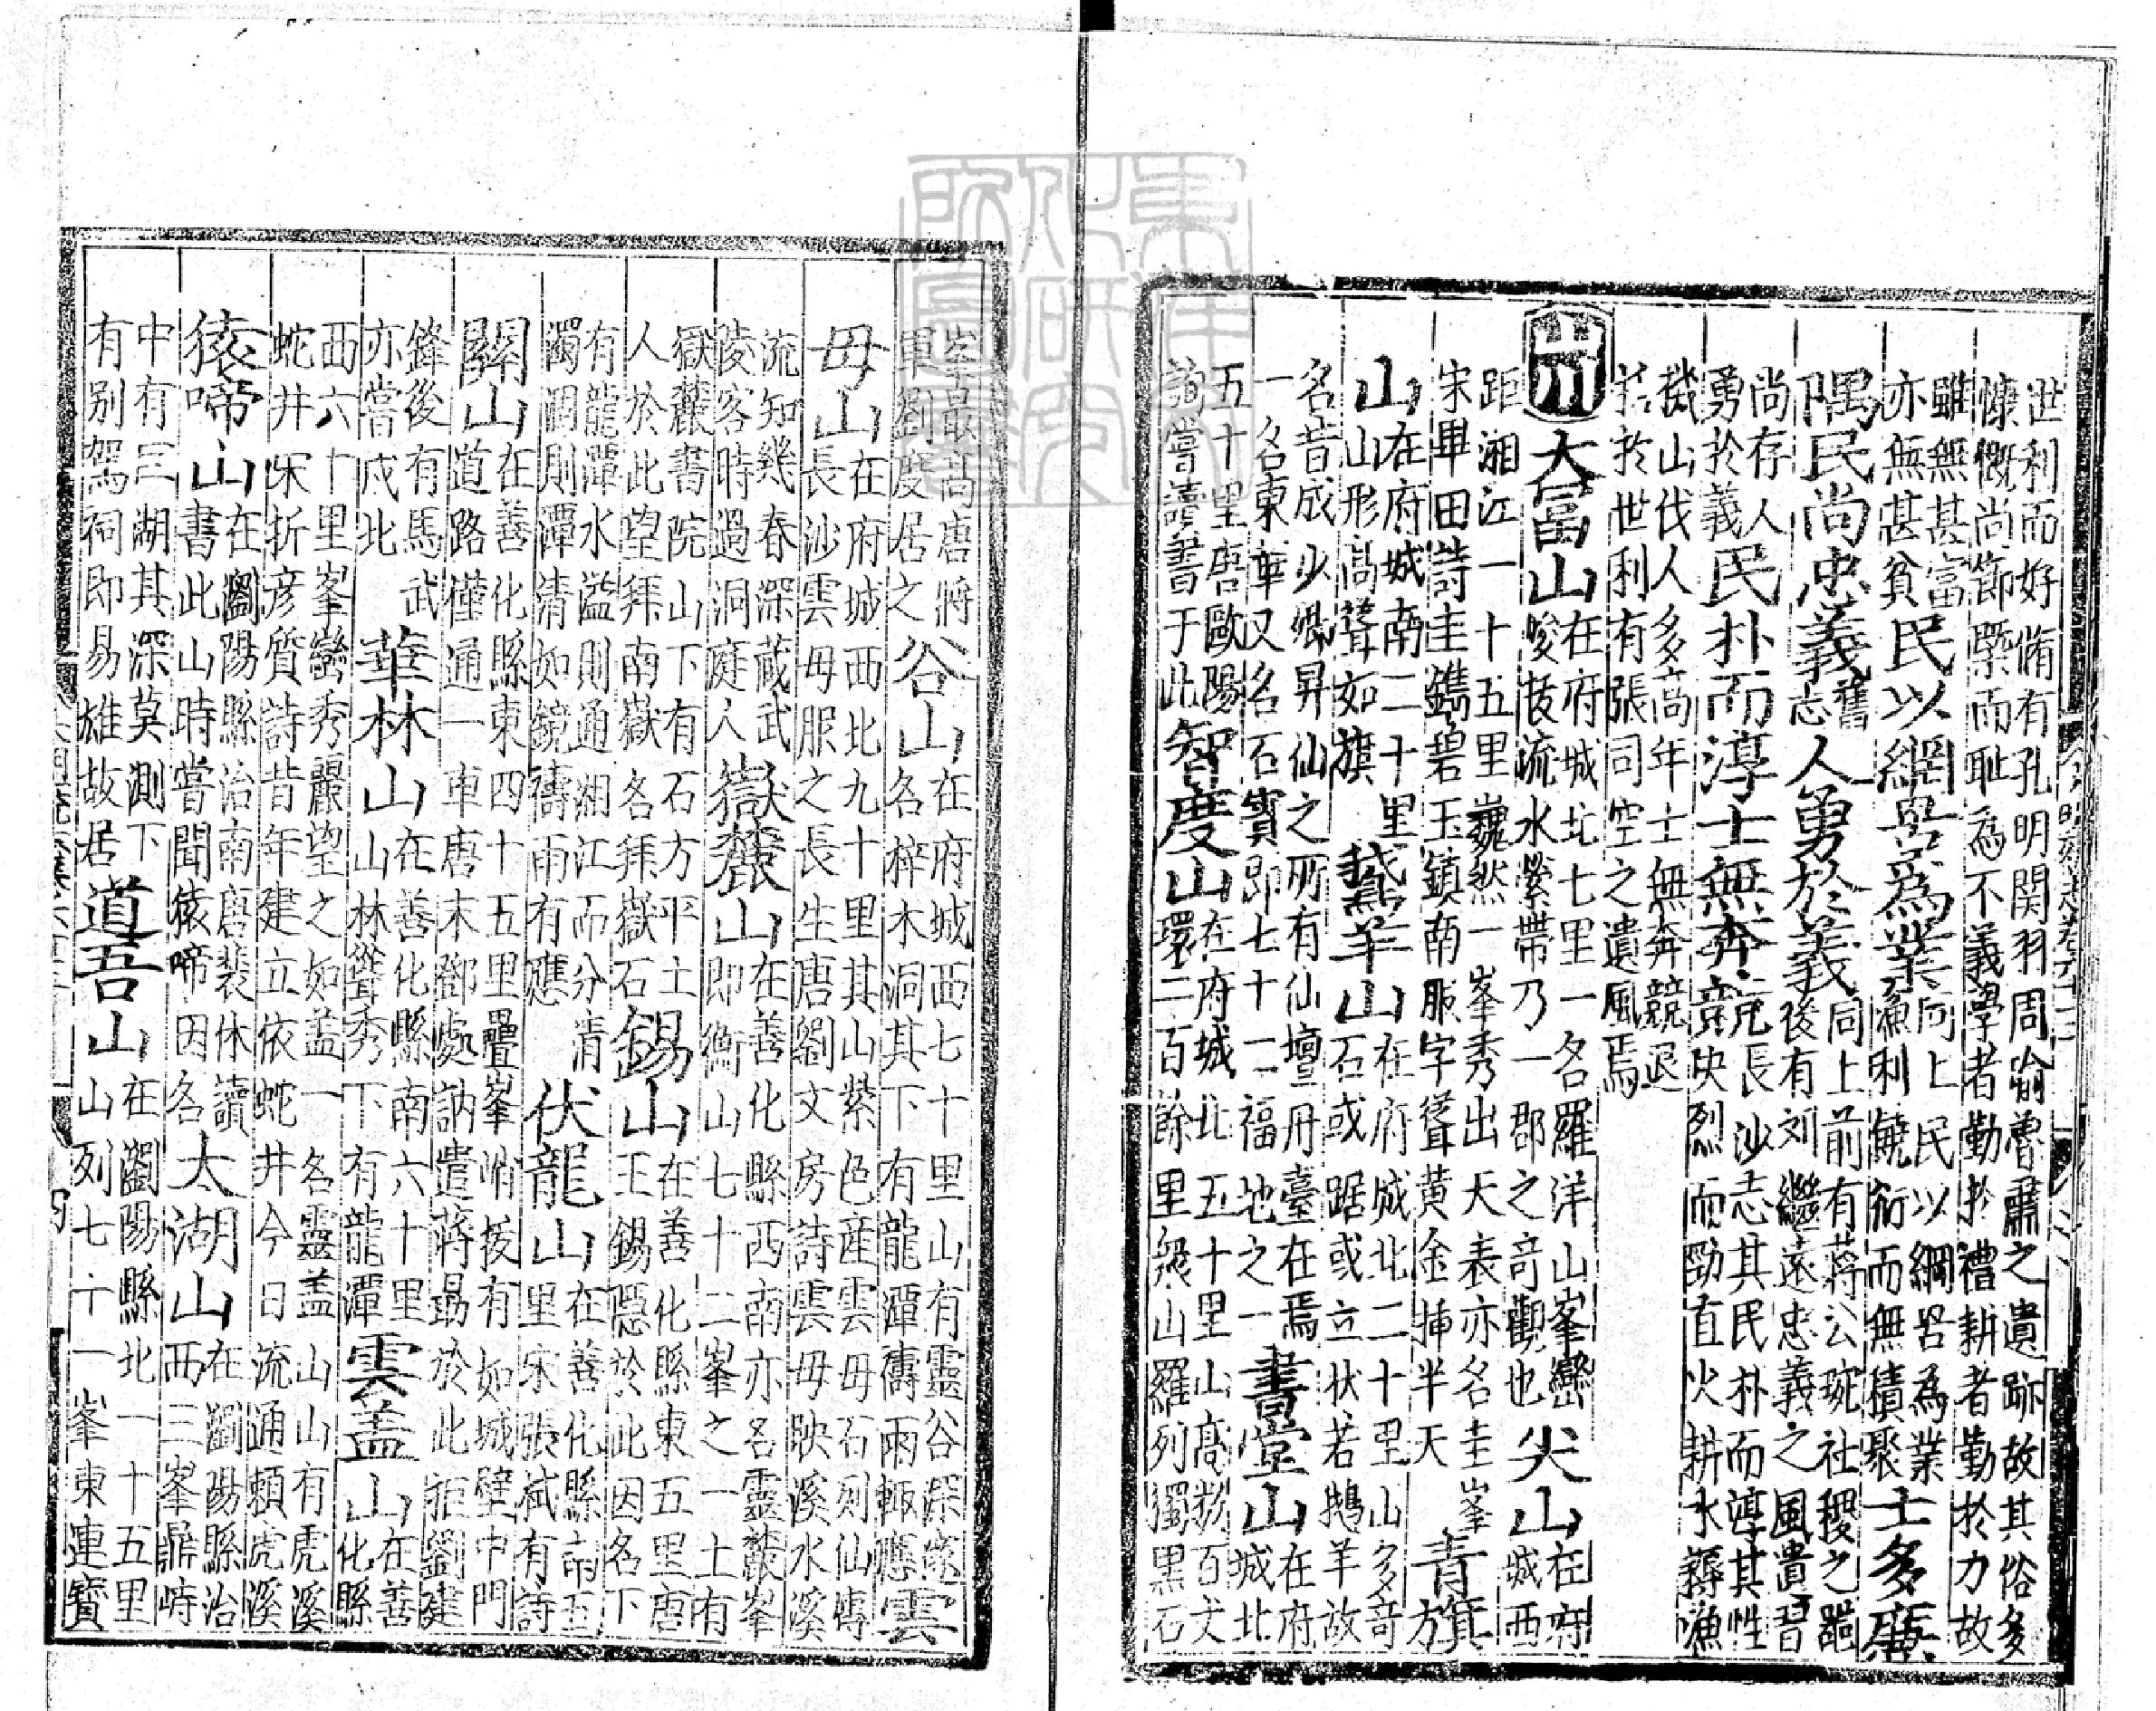 世利而好脩有孔明関羽周瑜魯肅之遺跡故其俗多
慷慨尚節槩而耻為不義學者勤於禮耕者勤於力故
雖無甚富亦無甚貧民以網罟爲業同上民以網罟為業漁利饒衍而無積聚士多廉
隅民尚忠義舊志人勇於義同上前有蔣公琬社稷之器後有刘繼遠忠義之風遺習
尚存人勇於義民朴而淳士無奔競長沙志其民朴而淳其性决烈而勁直火耕水耨漁
山伐人多高年士無奔競退
於世利有張司空之遺風焉
山川大富山在府城北七里一名羅洋山峯巒峻拔流水縈帶乃一郡之竒觀也尖山在府城西
距湘江一十五里巍然一峯秀出天表亦名圭峯宋畢田詩圭鐫碧玉鎮南服字聳黄金挿半天青旗
山在府城南二十里山形高聳如旗鵞羊山在府城北二十里山多竒石或踞或立状若鵝羊故
名昔成少卿昇仙之所有仙壇丹臺在焉一名東華又名石寳即七十二福地之一書堂山在府城北
五十里唐歐陽詢嘗讀書于此智度山在府城北五十里山高数百丈環二百餘里羣山羅列獨黒石
峯最高唐將軍劉度居之谷山在府城西七十里山有靈谷深邃名梓木洞其下有龍潭禱雨輒應雲
母山在府城西北九十里其山紫色産雲母石列仙傳長沙雲母服之長生唐劉文房詩雲母映溪水溪
流知幾春深藏武陵客時過洞庭人嶽麓山在善化縣西南亦名靈麓峯即衡山七十二峯之一土有
嶽麓書院山下有石方平土人於此望拜南嶽名拜嶽石錫山在善化縣東五里唐王錫隱於此因名下
有龍潭水溢則通湘江而分清濁涸則潭清如鏡禱雨有應伏龍山在善化縣南百里宋張栻有詩
關山在善化縣東四十五里疊峯峭拔有如城壁中門道路僅通一車唐末鄧處訥遣蔣勛於此拒劉建
鋒後有馬武亦嘗戍北華林山在善化縣南六十里山林聳秀下有龍潭雲盖山在善化縣
西六十里峯巒秀麗望之如盖一名靈盖山山有虎溪
蛇井宋折彦質詩昔年建立依蛇井今日流通頼虎溪
猿啼山在瀏陽縣治南唐裴休讀書此山時嘗聞猿啼因名太湖山在瀏陽縣治西三峯鼎峙
中有三湖其深莫測下有别駕祠即易雄故居道吾山在瀏陽縣北一十五里山列七十一峯東連寳